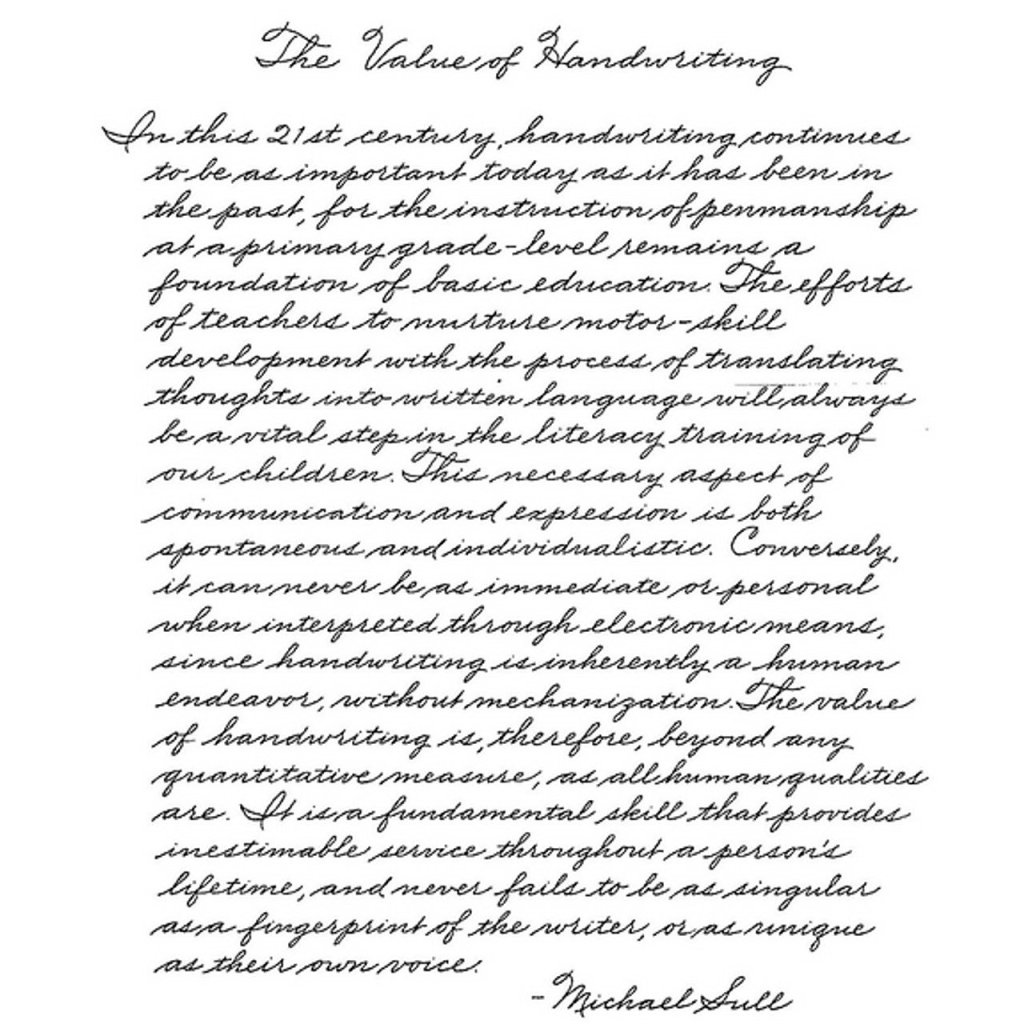 The Value of Handwriting
In this 21st century, handwriting continues
to be as important today as it has been in
the past, for the instruction of penmanship
at a primary grade-level remains a
foundation of basic education. The efforts
of teachers to nurture motor-skill
development with the process of translating
thoughts into written language will always
be a vital step in the literacy training of
our children. This necessary aspect of
communication and expression is both
spontaneous and individualistic. Conversely,
it can never be as immediate or personal
when interpreted through electronic means,
since handwriting is inherently a human
endeavor, without mechanization. The value
of handwriting is, therefore, beyond any
quantitative measure, as all human qualities
are. It is a fundamental skill that provides
inestimable service throughout a person's
lifetime, and never fails to be as singular
as a fingerprint of the writer, or as unique
as their own voice.
-Michael Sull